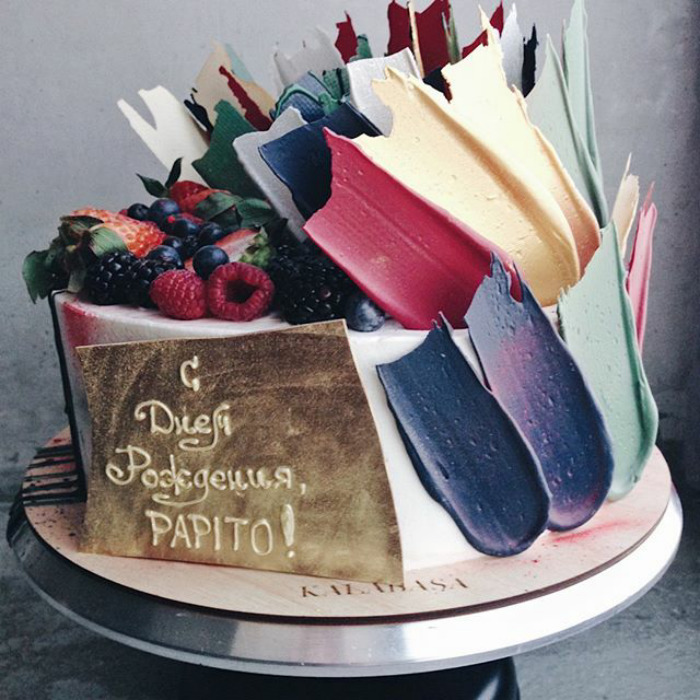 С
Днем
Рождения,
PAPITO!
KALABASA